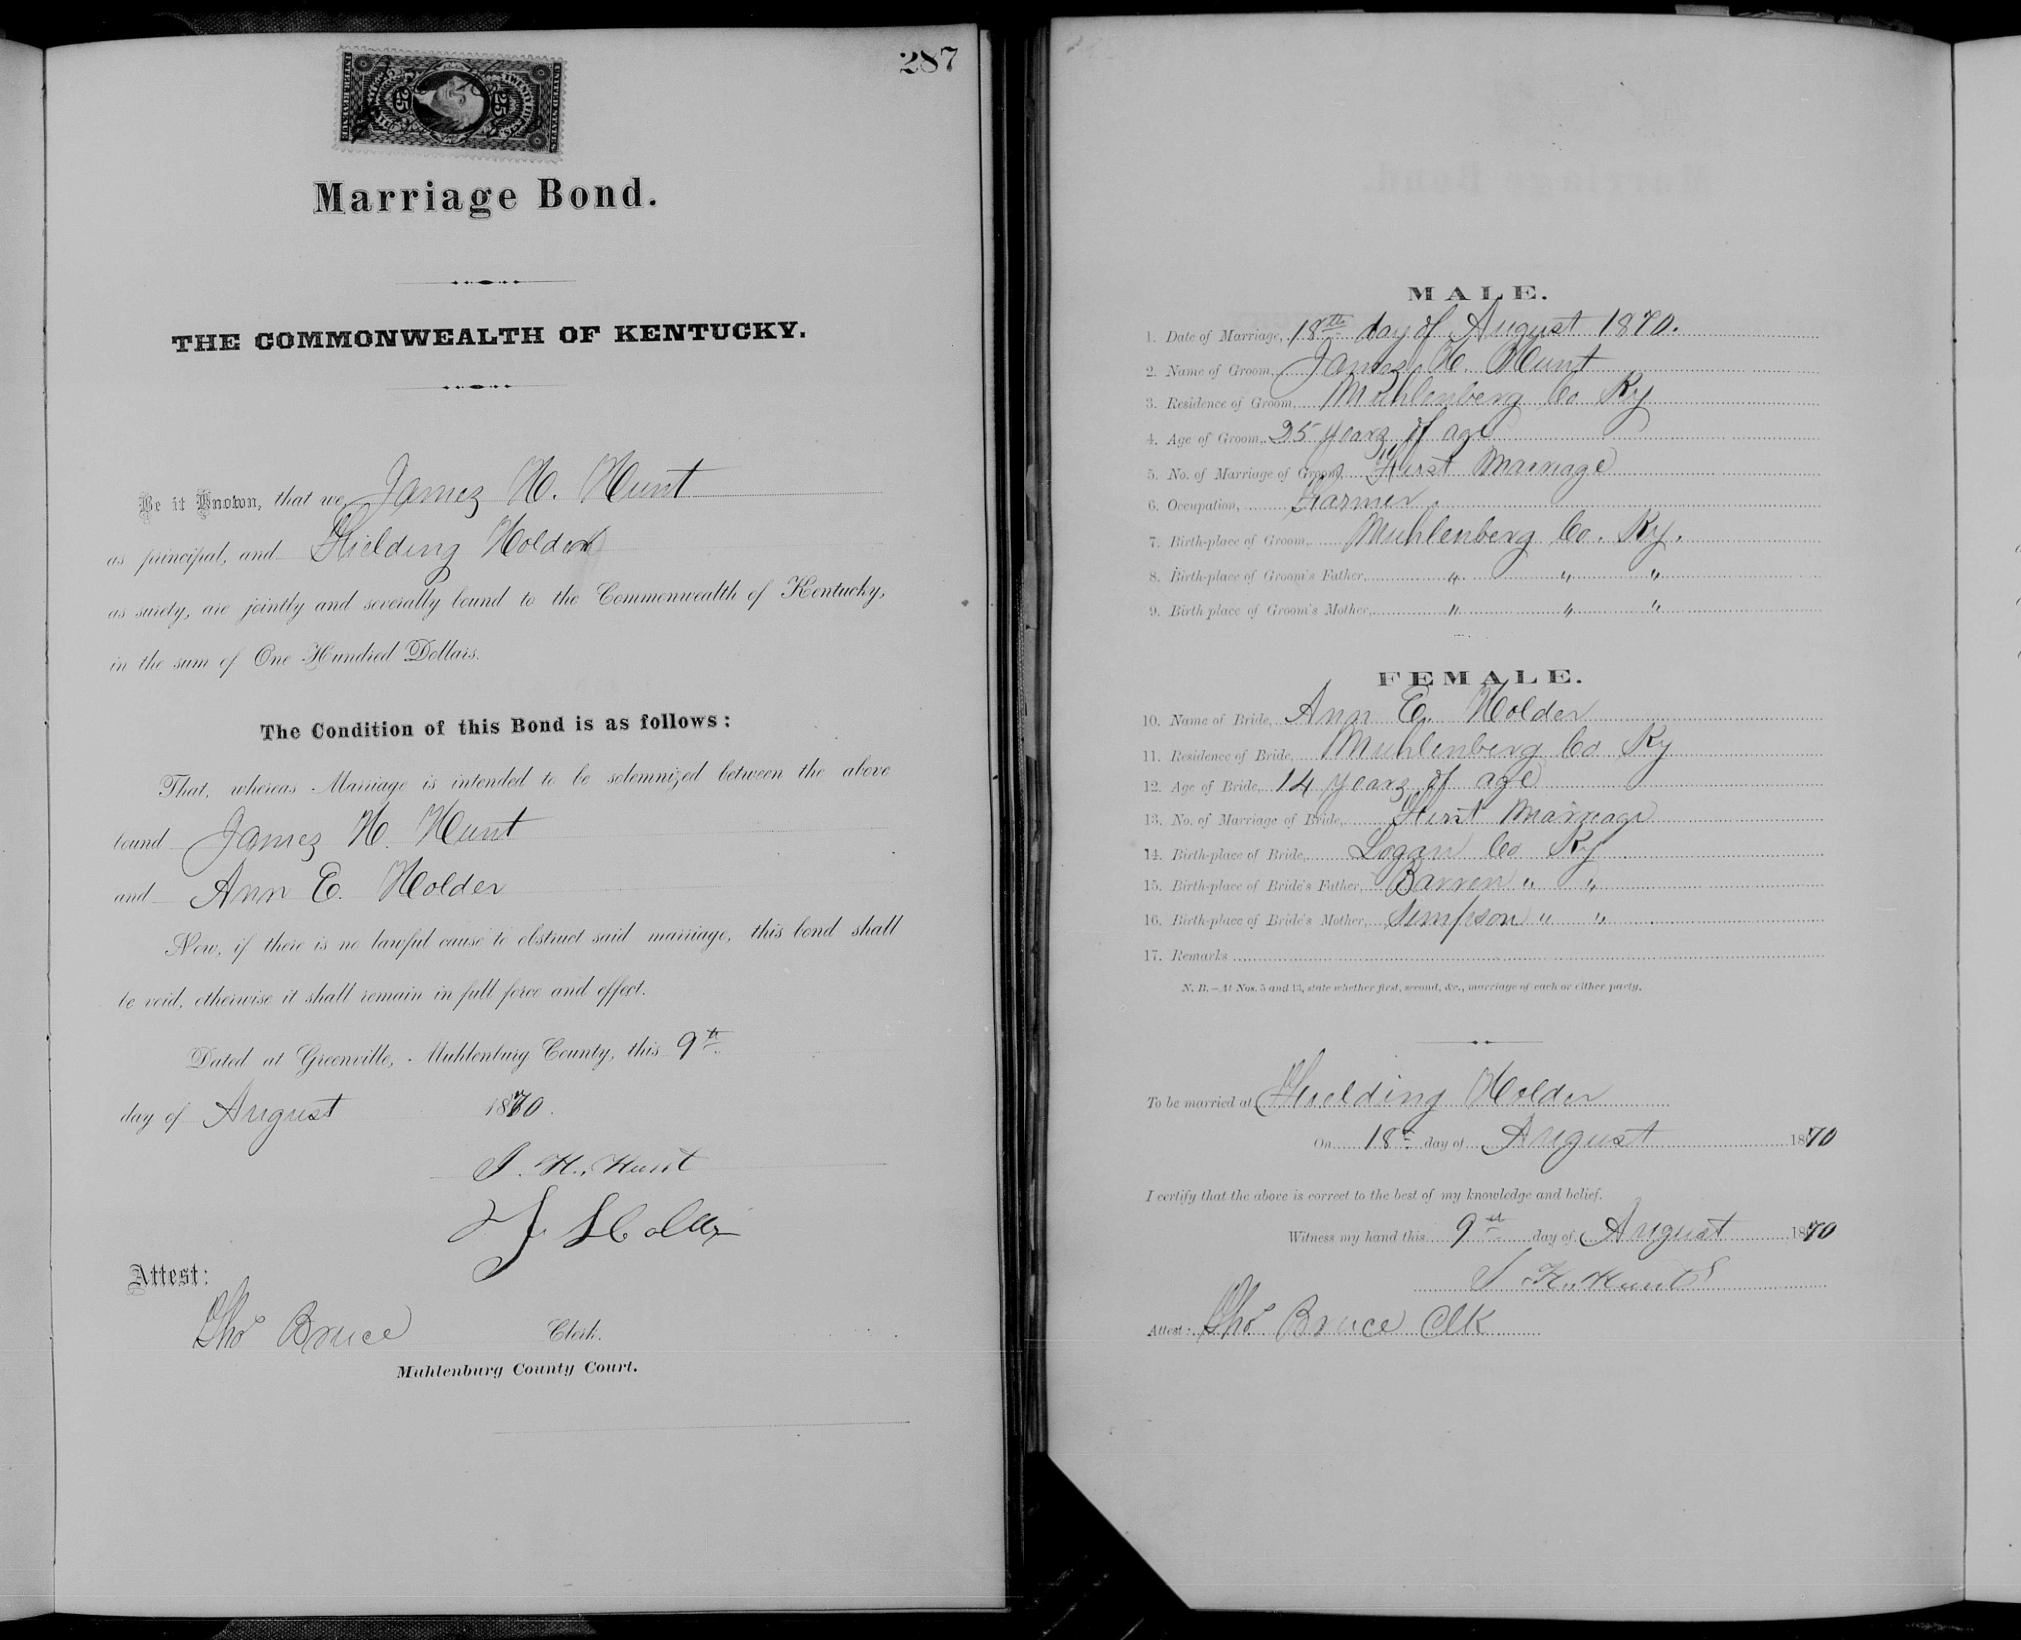 287
UNITED STATES
INTER. REVENUE
25
25
Marriage Bond.
THE COMMONWEALTH OF KENTUCKY.
Be it Known, that we, James H. Hunt
as principal, and Fielding Holder
as surety, are jointly and severally bound to the Commonwealth of Kentucky,
in the sum of One Hundred Dollars.
The Condition of this Bond is as follows:
That, whereas Marriage is intended to be solemnized between the above
bound James H. Hunt
and Ann E. Holder
Now, if there is no lawful cause to obstruct said marriage, this bond shall
be void, otherwise it shall remain in full force and effect.
Dated at Greenville, Muhlenburg County, this 9th
day of August 1870.
J. H. Hunt
F Holder
Attest:
Thos Bruce Clerk.
Muhlenburg County Court.
MALE.
1. Date of Marriage, 18th day of August 1870.
2. Name of Groom, James H. Hunt
3. Residence of Groom, Muhlenberg Co Ky
4. Age of Groom, 25 years of age
5. No. of Marriage of Groom, First Marriage
6. Occupation, Farmer.
7. Birth-place of Groom, Muhlenberg Co. Ky.
8. Birth-place of Groom's Father, " " "
9. Birth place of Groom's Mother, " " "
FEMALE.
10. Name of Bride, Ann E. Holder
11. Residence of Bride, Muhlenberg Co Ky
12. Age of Bride, 14 years of age
13. No. of Marriage of Bride, First Marriage
14. Birth-place of Bride, Logan Co Ky
15. Birth-place of Bride's Father, Barren " "
16. Birth-place of Bride's Mother, Simpson " "
17. Remarks
N. B.—At Nos. 5 and 13, state whether first, second, &c., marriage of each or either party.
To be married at Fielding Holder
On 18th day of August 1870
I certify that the above is correct to the best of my knowledge and belief.
Witness my hand this 9th day of August 1870
J H. Hunt
Attest: Thos. Bruce Clk